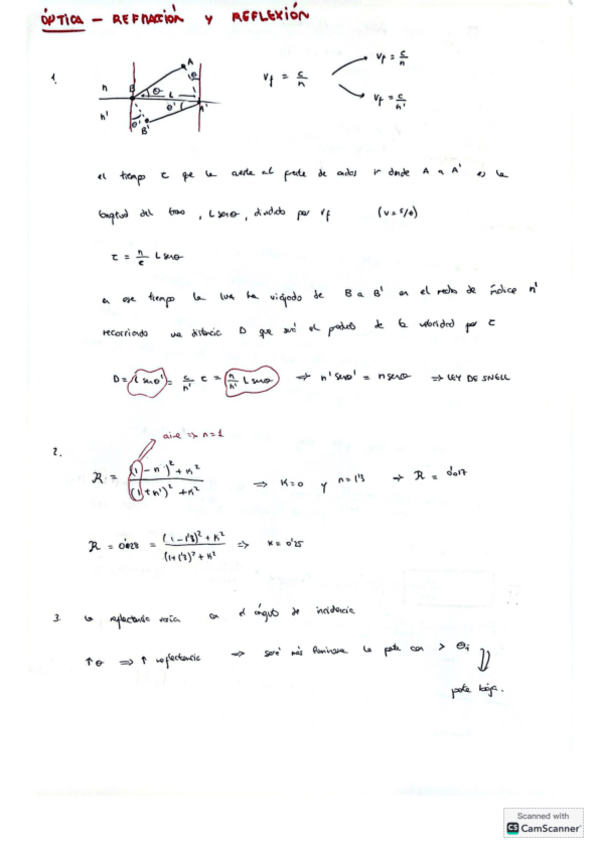 ÓPTICA - REFRACCIÓN Y REFLEXIÓN
1.
n
n'
A
B
θ
L
θ'
A'
B'
v_f = c/n
v_f = c/n
v_f = c/n'
el tiempo τ que le cuesta al frente de ondas ir desde A a A' es la
longitud del tramo, L senθ, dividido por v_f (v = e/t)
τ = n/c L senθ
en ese tiempo la luz ha viajado de B a B' en el medio de índice n'
recorriendo una distancia D que será el producto de la velocidad por τ
D = L senθ' = c/n' τ = n/n' L senθ ⇒ n' senθ' = n senθ ⇒ LEY DE SNELL
aire ⇒ n=1
2.
R = (1-n')² + K² / (1+n')² + K² ⇒ K=0 y n=1'3 → R = 0'017
R = 0'028 = (1-1'3)² + K² / (1+1'3)² + K² ⇒ K = 0'25
3. la reflectancia varía con el ángulo de incidencia
↑θ ⇒ ↑ reflectancia ⇒ será más luminosa la parte con > θi
⇓
parte baja.
Scanned with
CS CamScanner